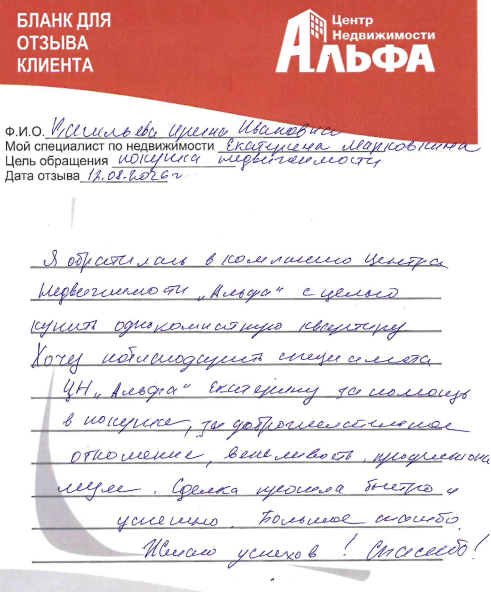 БЛАНК ДЛЯ
ОТЗЫВА
КЛИЕНТА
Центр
Недвижимости
АЛЬФА
Ф.И.О. Васильева Ирина Ивановна
Мой специалист по недвижимости Екатерина Марковкина
Цель обращения покупка недвижимости
Дата отзыва 12.08.2026 г
Я обратилась в компанию Центра
Недвижимости „Альфа" с целью
купить однокомнатную квартиру
Хочу поблагодарить специалиста
ЦН „Альфа" Екатерину за помощь
в покупке, за доброжелательное
отношение, вежливость, профессиона
лизм. Сделка прошла быстро и
успешно. Большое спасибо.
Желаю успехов! Спасибо!